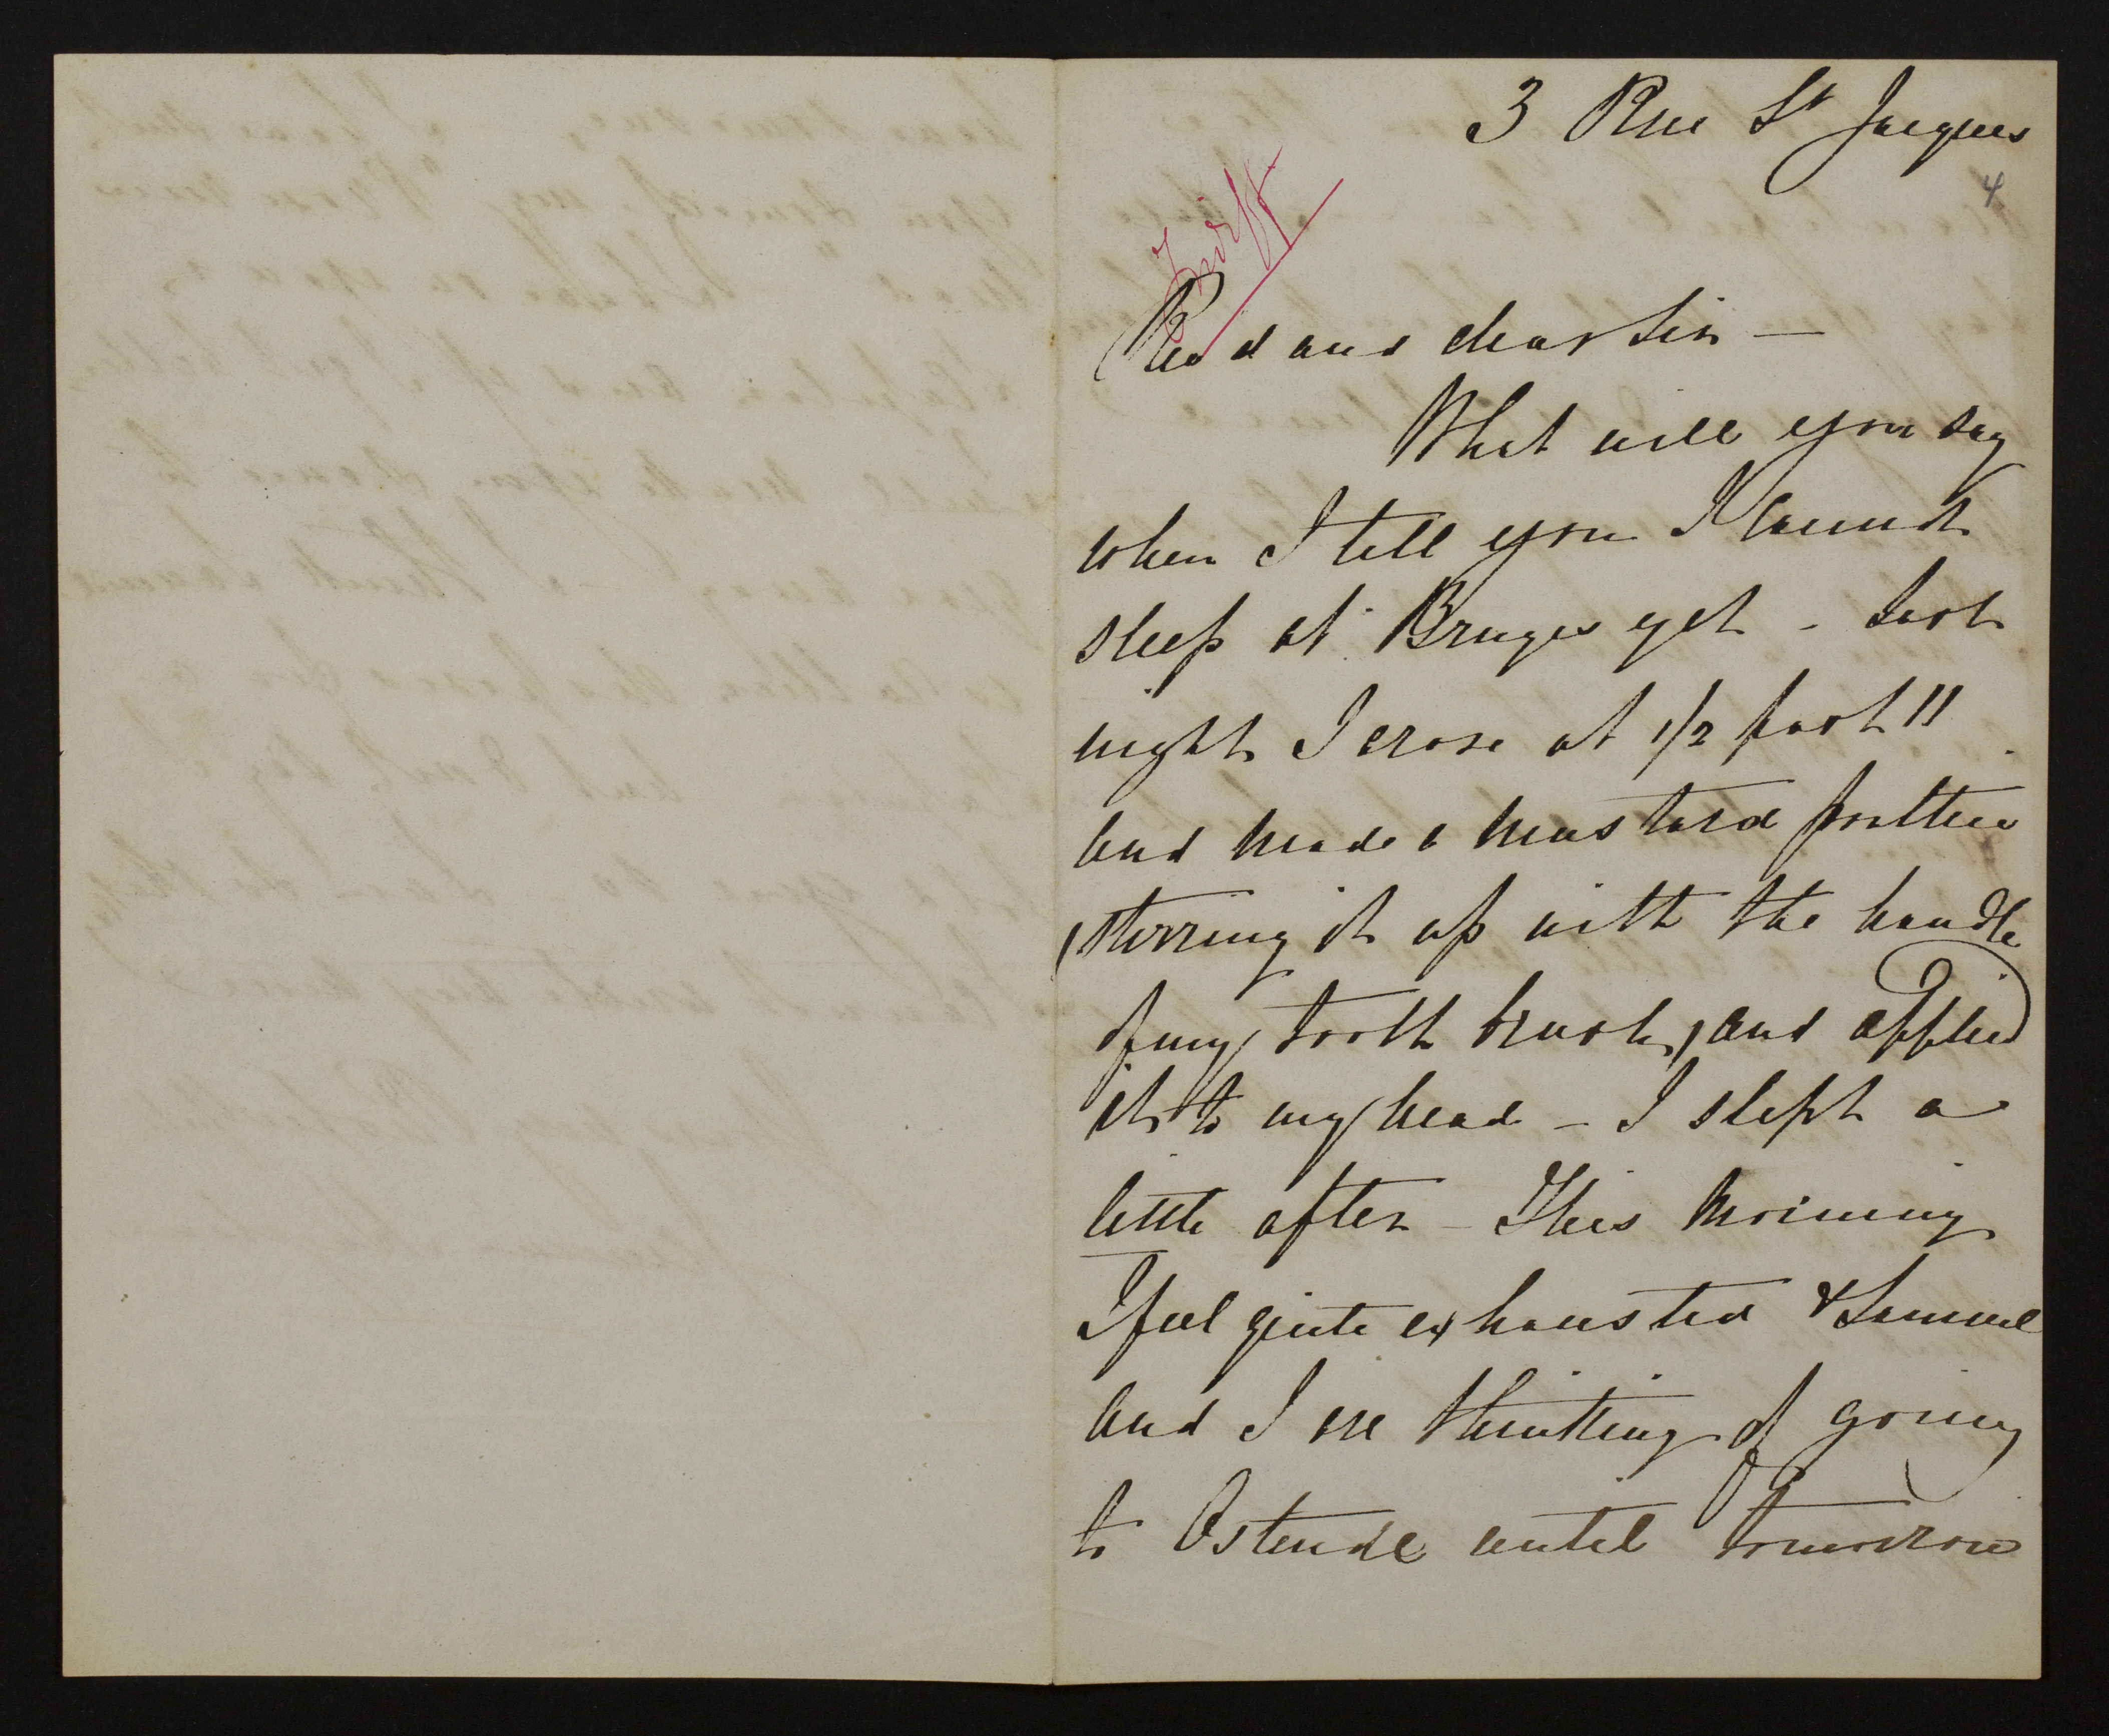 3 Rue St Jacques
4
Revd and dear Sir —
What will you say
when I tell you I cannot
sleep at Bruges yet - Last
night I arose at 1/2 past 11
and made a mustard poultice
(stirring it up with the handle
of my tooth brush) and applied
it to my head - I slept a
little after - This morning
I feel quite exhausted & Samuel
and I are thinking of going
to Ostende until tomorrow